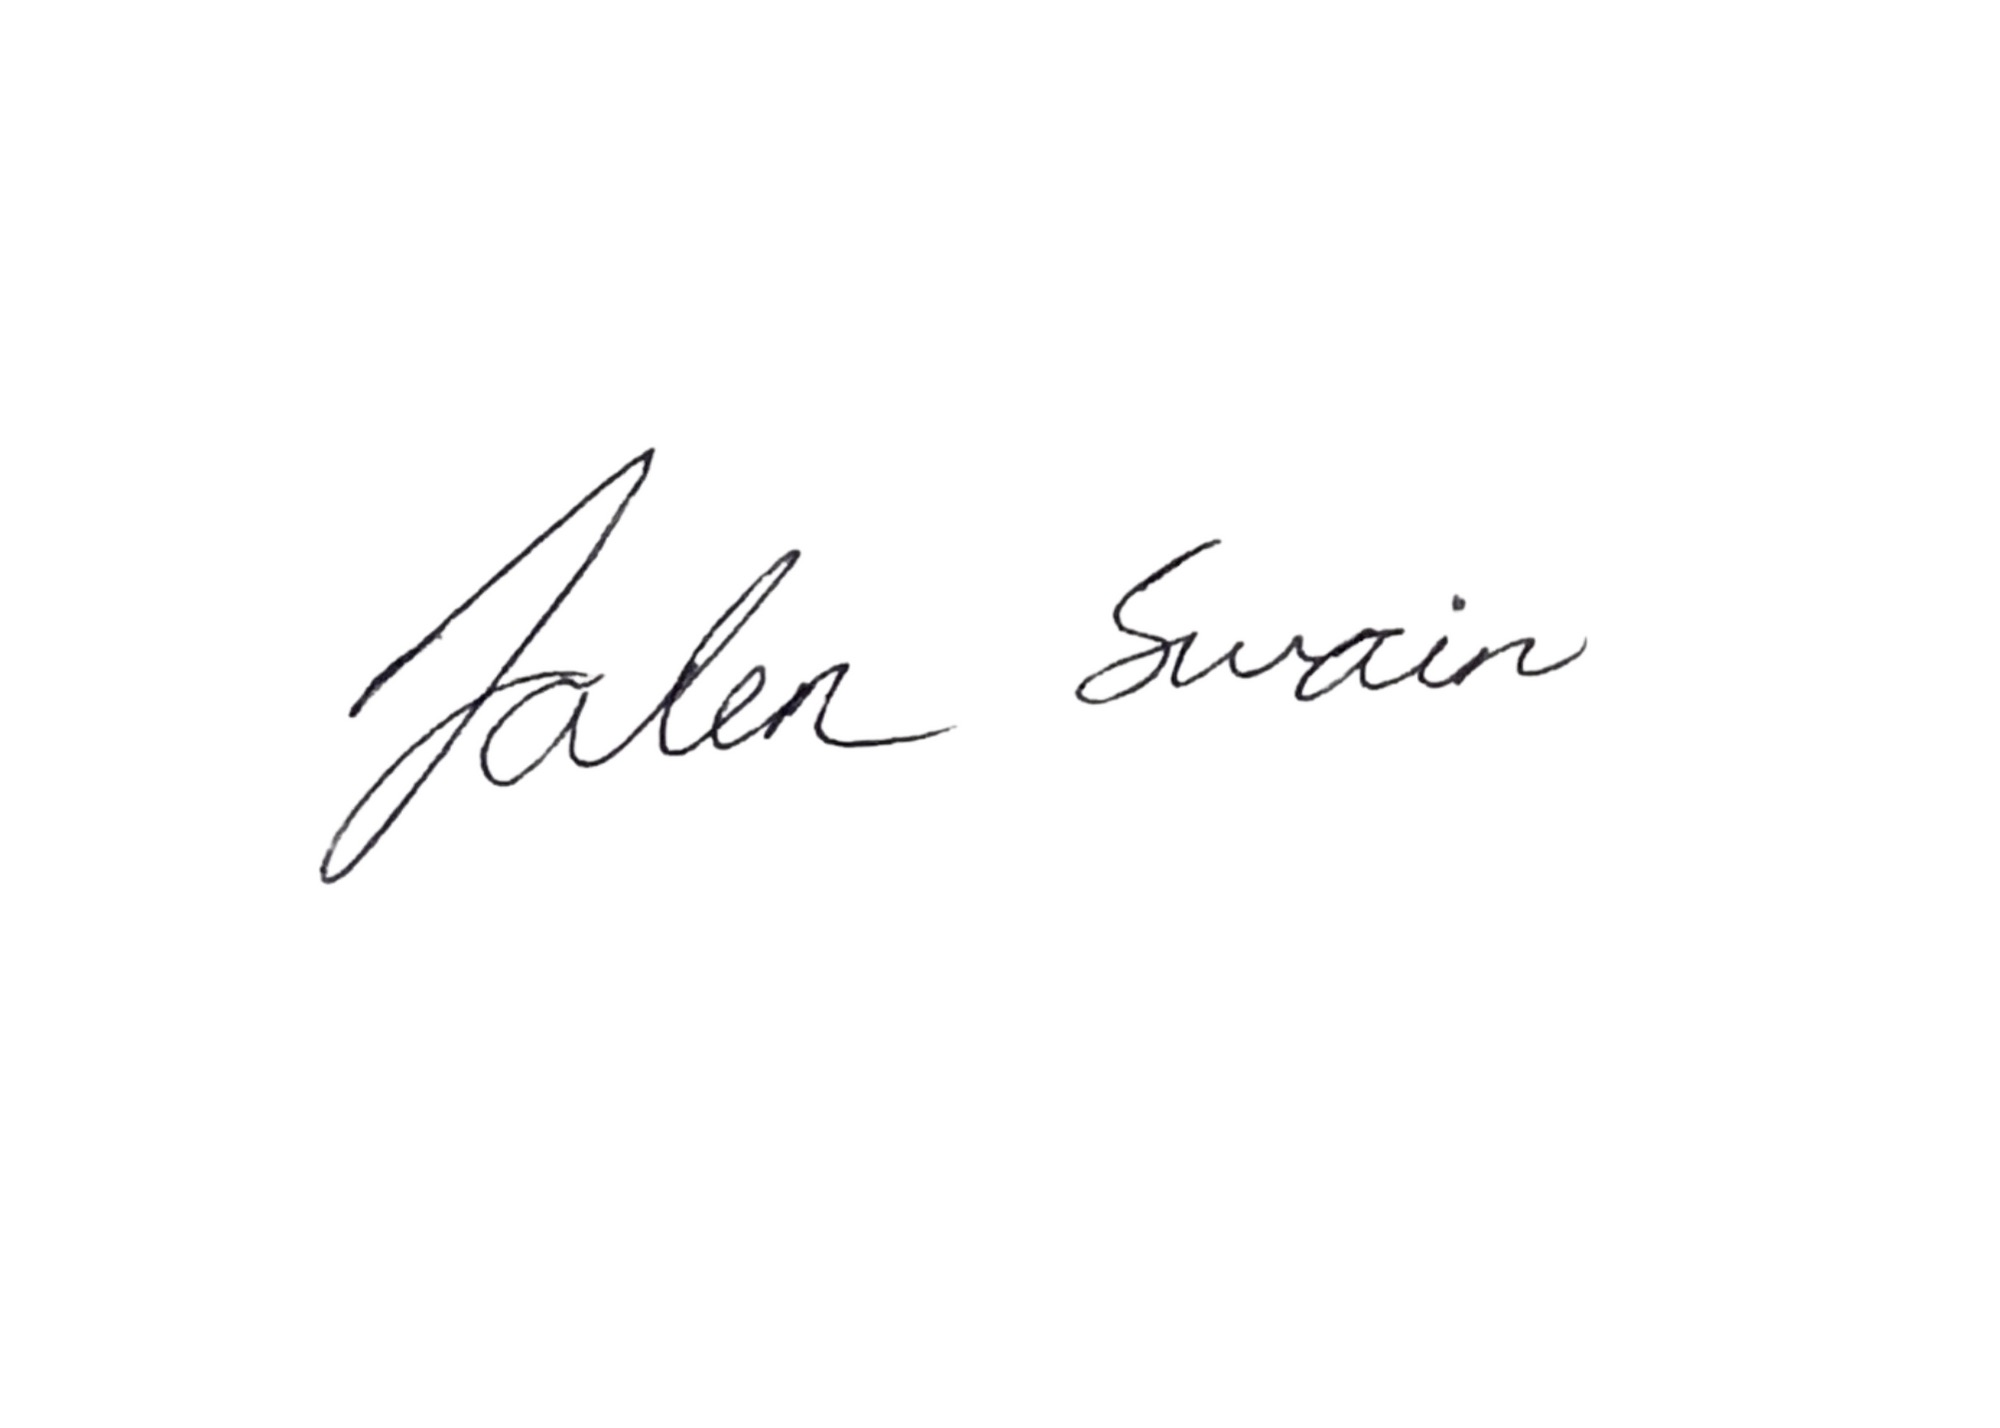 Jalen Swain